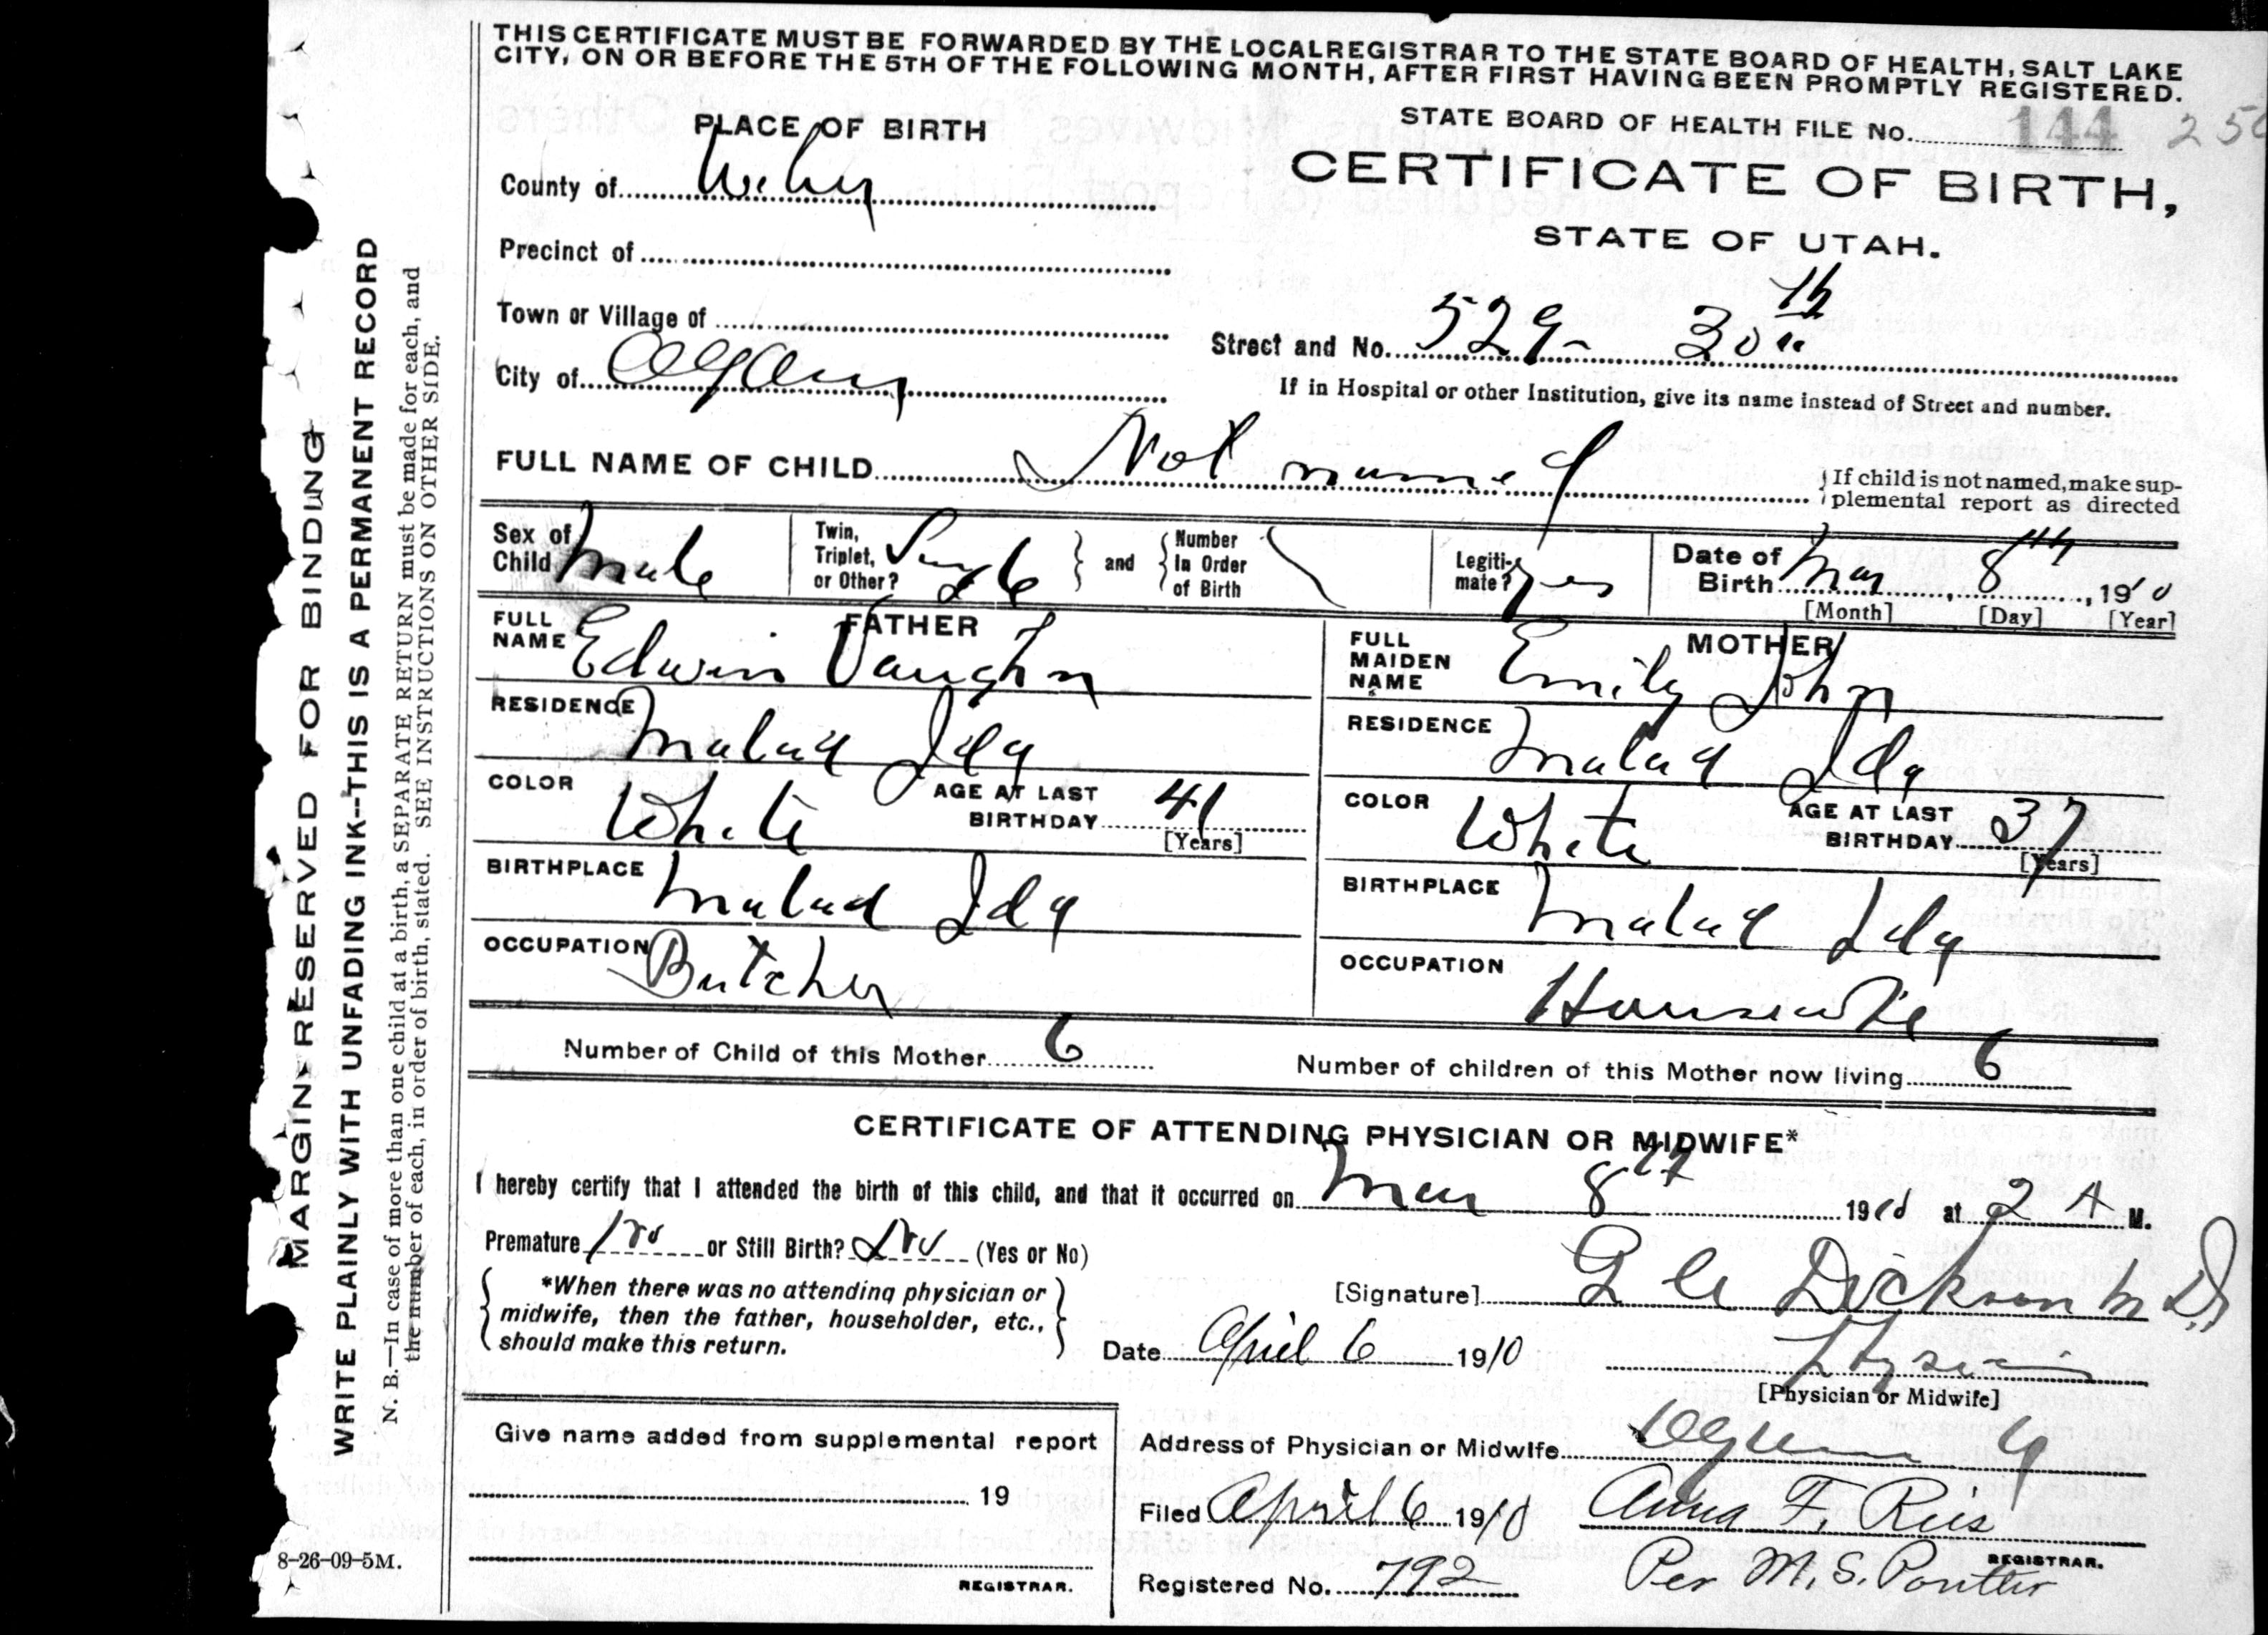 THIS CERTIFICATE MUST BE FORWARDED BY THE LOCAL REGISTRAR TO THE STATE BOARD OF HEALTH, SALT LAKE
CITY, ON OR BEFORE THE 5TH OF THE FOLLOWING MONTH, AFTER FIRST HAVING BEEN PROMPTLY REGISTERED.
STATE BOARD OF HEALTH FILE No. 144
PLACE OF BIRTH
CERTIFICATE OF BIRTH,
STATE OF UTAH.
County of Weber
Precinct of
Town or Village of
Street and No. 529 - 30th
City of Ogden
If in Hospital or other Institution, give its name instead of Street and number.
FULL NAME OF CHILD Not named
If child is not named, make sup-
plemental report as directed
Sex of Child Male
Twin, Triplet, or Other? Single and Number In Order of Birth
Legiti-mate? yes
Date of Birth Mar 8th, 1910
[Month] [Day] [Year]
FATHER
FULL NAME Edwin Vaughn
RESIDENCE Malad Ida
COLOR White AGE AT LAST BIRTHDAY 41
[Years]
BIRTHPLACE Malad Ida
OCCUPATION Butcher
MOTHER
FULL MAIDEN NAME Emily John
RESIDENCE Malad Ida
COLOR White AGE AT LAST BIRTHDAY 37
[Years]
BIRTHPLACE Malad Ida
OCCUPATION Housewife
Number of Child of this Mother 6
Number of children of this Mother now living 6
CERTIFICATE OF ATTENDING PHYSICIAN OR MIDWIFE*
I hereby certify that I attended the birth of this child, and that it occurred on Mar 8th 1910 at 2 A M.
Premature No or Still Birth? No (Yes or No)
*When there was no attending physician or
midwife, then the father, householder, etc.,
should make this return.
[Signature] Dickson M D
Date April 6 1910
Physician
[Physician or Midwife]
Give name added from supplemental report
19
REGISTRAR.
Address of Physician or Midwife Ogden
Filed April 6 1910 Anna F. Reis
REGISTRAR.
Registered No. 792 Per M. S. Poulter
MARGIN RESERVED FOR BINDING
WRITE PLAINLY WITH UNFADING INK--THIS IS A PERMANENT RECORD
N. B.—In case of more than one child at a birth, a SEPARATE RETURN must be made for each, and
the number of each, in order of birth, stated. SEE INSTRUCTIONS ON OTHER SIDE.
8-26-09-5M.